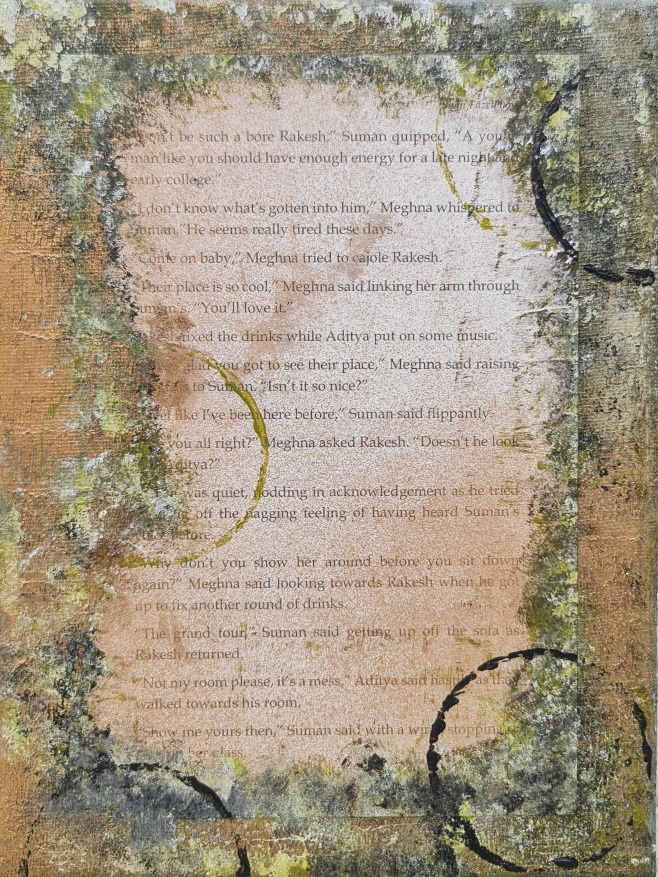 be such a bore Rakesh,” Suman quipped, “A
man like you should have enough energy for a late night and
early college.”
I don’t know what’s gotten into him,” Meghna whispered to
Suman. “He seems really tired these days.”
Come on baby,” Meghna tried to cajole Rakesh.
Their place is so cool,” Meghna said linking her arm through
Suman’s. “You’ll love it.”
mixed the drinks while Aditya put on some music.
glad you got to see their place,” Meghna said raising
to Suman. “Isn’t it so nice?”
like I’ve been here before,” Suman said flippantly.
you all right?” Meghna asked Rakesh. “Doesn’t he look
Aditya?”
was quiet, nodding in acknowledgement as he tried
off the nagging feeling of having heard Suman’s
before.
“Why don’t you show her around before you sit down
again?” Meghna said looking towards Rakesh when he got
up to fix another round of drinks.
“The grand tour,” Suman said getting up off the sofa as
Rakesh returned.
“Not my room please, it’s a mess,” Aditya said as they
walked towards his room.
“Show me yours then,” Suman said with a wink stopping
her glass